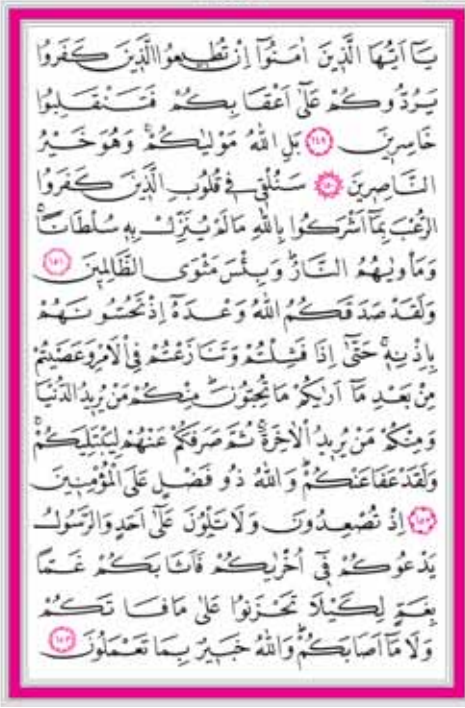 يَٓا اَيُّهَا الَّذٖينَ اٰمَنُٓوا اِنْ تُطٖيعُوا الَّذٖينَ كَفَرُوا
يَرُدُّوكُمْ عَلٰٓى اَعْقَابِكُمْ فَتَنْقَلِبُوا
خَاسِرٖينَ ﴿١٤٩﴾ بَلِ اللّٰهُ مَوْلٰيكُمْۚ وَهُوَ خَيْرُ
النَّاصِرٖينَ ﴿١٥٠﴾ سَنُلْقٖى فٖى قُلُوبِ الَّذٖينَ كَفَرُوا
الرُّعْبَ بِمَٓا اَشْرَكُوا بِاللّٰهِ مَا لَمْ يُنَزِّلْ بِهٖ سُلْطَاناًۚ
وَمَأْوٰيهُمُ النَّارُۜ وَبِئْسَ مَثْوَى الظَّالِمٖينَ ﴿١٥١﴾
وَلَقَدْ صَدَقَكُمُ اللّٰهُ وَعْدَهُٓ اِذْ تَحُسُّونَهُمْ
بِاِذْنِهٖۚ حَتّٰٓى اِذَا فَشِلْتُمْ وَتَنَازَعْتُمْ فِى الْاَمْرِ وَعَصَيْتُمْ
مِنْ بَعْدِ مَٓا اَرٰيكُمْ مَا تُحِبُّونَۜ مِنْكُمْ مَنْ يُرٖيدُ الدُّنْيَا
وَمِنْكُمْ مَنْ يُرٖيدُ الْاٰخِرَةَۚ ثُمَّ صَرَفَكُمْ عَنْهُمْ لِيَبْتَلِيَكُمْۚ
وَلَقَدْ عَفَا عَنْكُمْۜ وَاللّٰهُ ذُو فَضْلٍ عَلَى الْمُؤْمِنٖينَ
﴿١٥٢﴾ اِذْ تُصْعِدُونَ وَلَا تَلْوُنَ عَلٰٓى اَحَدٍ وَالرَّسُولُ
يَدْعُوكُمْ فٖٓى اُخْرٰيكُمْ فَاَثَابَكُمْ غَماًّ
بِغَمٍّ لِكَيْلَا تَحْزَنُوا عَلٰى مَا فَاتَكُمْ
وَلَا مَٓا اَصَابَكُمْۜ وَاللّٰهُ خَبٖيرٌ بِمَا تَعْمَلُونَ ﴿١٥٣﴾